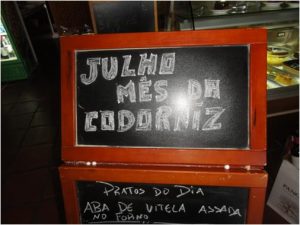 JULHO
MÊS DA
CODORNÍZ
PRATOS DO DIA
ABA DE VITELA ASSADA
NO FORNO